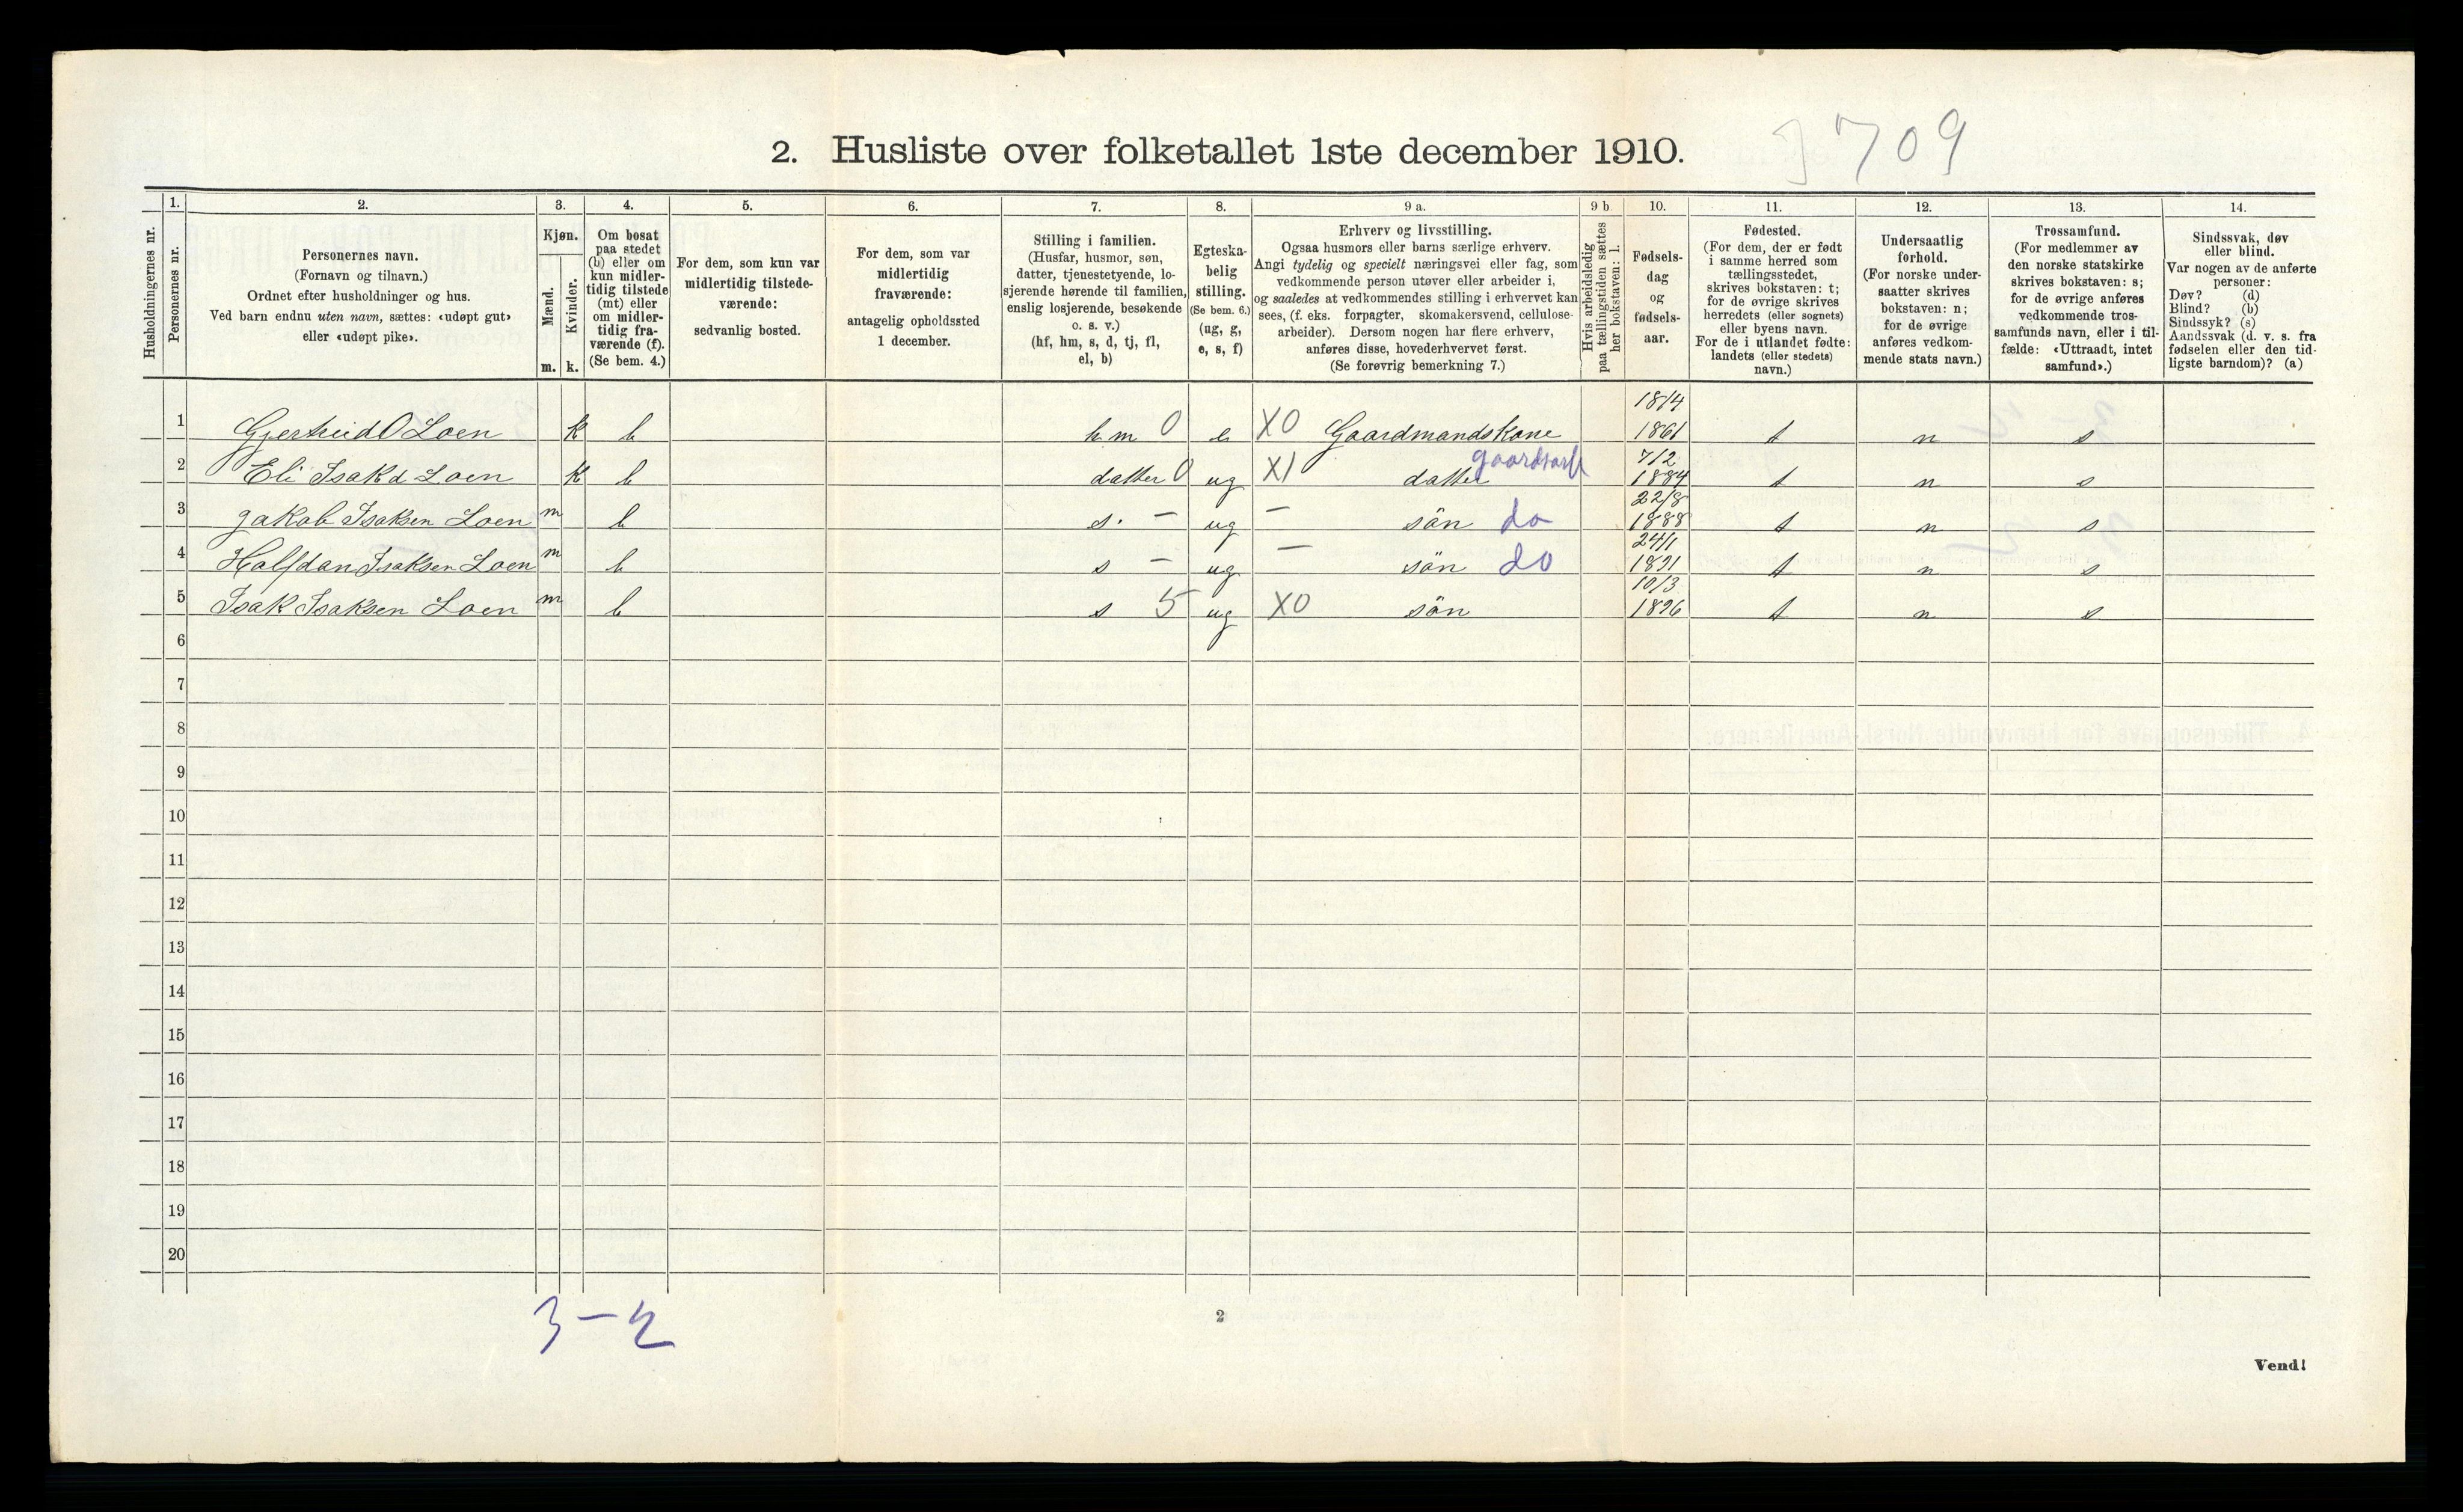 3709
2. Husliste over folketallet 1ste december 1910.
Husholdningernes nr.
1.
Personernes nr.
2.
Personernes navn.
(Fornavn og tilnavn.)
Ordnet efter husholdninger og hus.
Ved barn endnu uten navn, sættes: «udøpt gut»
eller «udøpt pike».
3.
Kjøn.
Mænd.
m.
Kvinder.
k.
4.
Om bosat
paa stedet
(b) eller om
kun midler-
tidig tilstede
(mt) eller
om midler-
tidig fra-
værende (f).
(Se bem. 4.)
5.
For dem, som kun var
midlertidig tilstede-
værende:
sedvanlig bosted.
6.
For dem, som var
midlertidig
fraværende:
antagelig opholdssted
1 december.
7.
Stilling i familien.
(Husfar, husmor, søn,
datter, tjenestetyende, lo-
sjerende hørende til familien,
enslig losjerende, besøkende
o. s. v.)
(hf, hm, s, d, tj, fl,
el, b)
8.
Egteska-
belig
stilling.
(Se bem. 6.)
(ug, g,
e, s, f)
9 a.
Erhverv og livsstilling.
Ogsaa husmors eller barns særlige erhverv.
Angi tydelig og specielt næringsvei eller fag, som
vedkommende person utøver eller arbeider i,
og saaledes at vedkommendes stilling i erhvervet kan
sees, (f. eks. forpagter, skomakersvend, cellulose-
arbeider). Dersom nogen har flere erhverv,
anføres disse, hovederhvervet først.
(Se forøvrig bemerkning 7.)
9 b
Hvis arbeidsledig
paa tællingstiden sættes
her bokstaven: l.
10.
Fødsels-
dag
og
fødsels-
aar.
11.
Fødested.
(For dem, der er født
i samme herred som
tællingsstedet,
skrives bokstaven: t;
for de øvrige skrives
herredets (eller sognets)
eller byens navn.
For de i utlandet fødte:
landets (eller stedets)
navn.)
12.
Undersaatlig
forhold.
(For norske under-
saatter skrives
bokstaven: n;
for de øvrige
anføres vedkom-
mende stats navn.)
13.
Trossamfund.
(For medlemmer av
den norske statskirke
skrives bokstaven: s;
for de øvrige anføres
vedkommende tros-
samfunds navn, eller i til-
fælde: «Uttraadt, intet
samfund».)
14.
Sindssvak, døv
eller blind.
Var nogen av de anførte
personer:
Døv? (d)
Blind? (b)
Sindssyk? (s)
Aandssvak (d. v. s. fra
fødselen eller den tid-
ligste barndom)? (a)
1 Gjertrud O Loen k b hm 0 e X0 Gaardmandskone 18/4 1861 t n s
2 Eli Isakd Loen k b datter 0 ug X1 datter gaardsarb 7/2 1884 t n s
3 Jakob Isaksen Loen m b s. - ug - sön do 22/8 1888 t n s
4 Halfdan Isaksen Loen m b s - ug - sön do 24/1 1891 t n s
5 Isak Isaksen Loen m b s 5 ug X0 sön 10/3 1896 t n s
6
7
8
9
10
11
12
13
14
15
16
17
18
19
20
3-2
2
Vend!